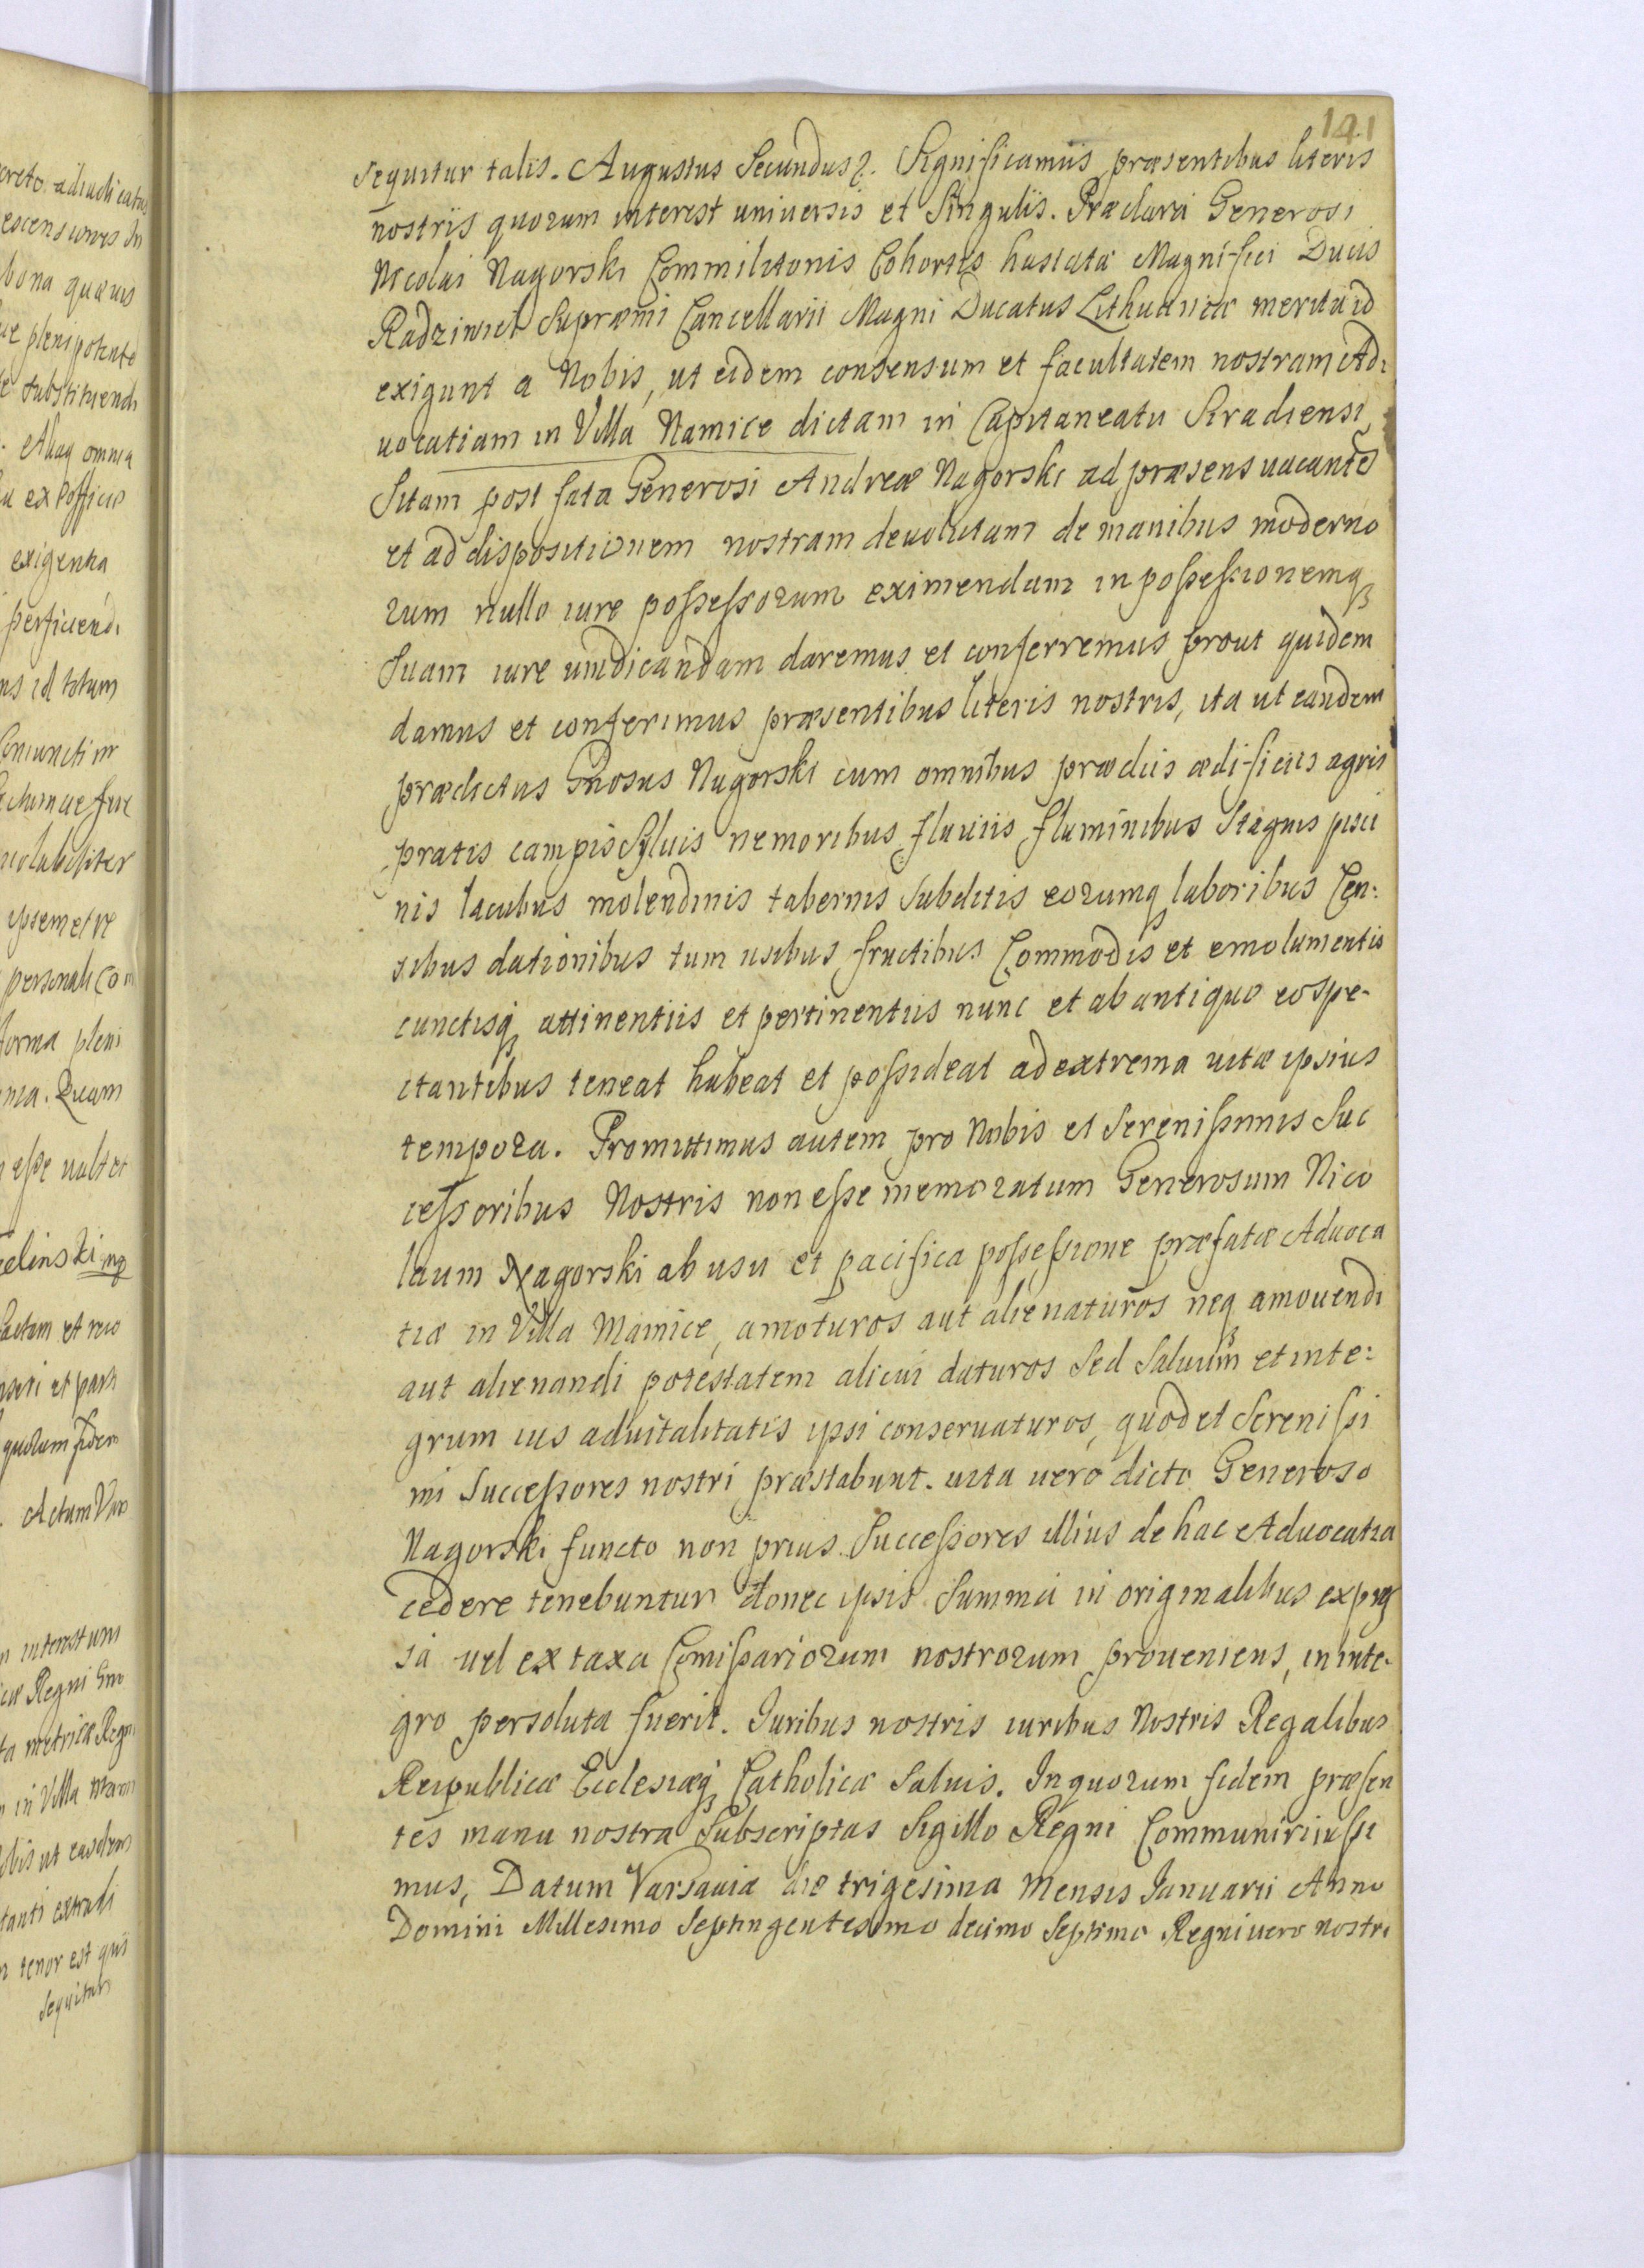 141
sequitur talis. Augustus Secundus &. Significamus præsentibus literis
nostris quorum interest universis et Singulis. Præclara Generosi
Nicolai Nagorski Commilitonis Cohortis hastatæ Magnifici Ducis
Radziwiel Supræmi Cancellarii Magni Ducatus Lithuaniæ merita id
exigunt a Nobis, ut eidem consensum et facultatem nostram Ad:
uocatiam in Villa Mamice dictam in Capitaneatu Siradiensi
Sitam post fata Generosi Andreæ Nagorski ad præsens uacantẽ
et ad dispositionem nostram deuolutam de manibus moderno
rum nullo iure possessorum eximendam in possessionemq
Suam iure uindicandam daremus et conferremus prout quidem
damus et conferimus præsentibus literis nostris, ita ut eandem
prædictus Gnosus Nagorski cum omnibus prædiis ædificiis agris
pratis campis Syluis nemoribus fluuiis fluminibus Stagnis pisci
nis lacubus molendinis tabernis Subditis eorumq laboribus Cen:
sibus dationibus tum usibus fructibus Commodis et emolumentis
cunctisq attinentiis et pertinentiis nunc et ab antiquo eo spe-
ctantibus teneat habeat et possideat ad extrema uitæ ipsius
tempora. Promittimus autem pro Nobis et Serenissimis Suc
cessoribus Nostris non esse memoratum Generosum Nico
laum Nagorski ab usu et pacifica possessione præfatæ Aduoca
tiæ in Villa Mamice, amoturos aut alienaturos neq amouendi
aut alienandi potestatem alicui daturos Sed Saluum et inte:
grum ius aduitalitatis ipsi conseruaturos, quod et Serenissi
mi Successores nostri præstabunt. uita uero dicto Generoso
Nagorski functo non prius Successores illius de hac Aduocatia
cedere tenebuntur donec ipsis Summa in originalibus expres
sa uel ex taxa Comissariorum nostrorum proueniens, in inte-
gro persoluta fuerit. Iuribus nostris iuribus Nostris Regalibus
Reipublicæ Ecclesiæq Catholicæ Saluis. In quorum fidem præsen
tes manu nostra Subscriptas Sigillo Regni Communiri iussi
mus, Datum Varsauiæ die trigesima Mensis Ianuarii Anno
Domini Millesimo Septingentesimo decimo Septimo Regni uero nostri